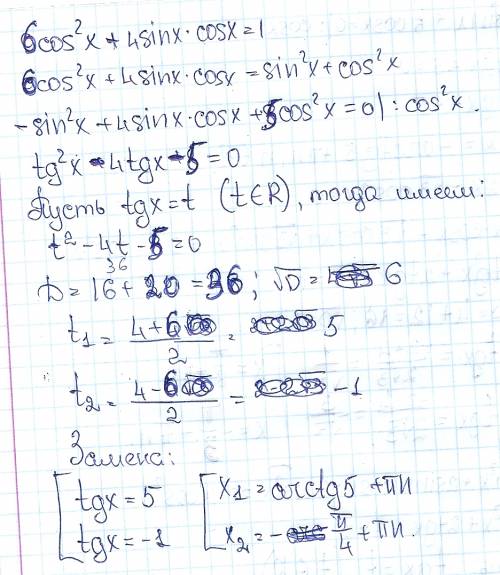 6cos²x + 4sinx·cosx = 1
6cos²x + 4sinx·cosx = sin²x + cos²x
-sin²x + 4sinx·cosx + 5cos²x = 0 | : cos²x.
tg²x - 4tgx - 5 = 0
Пусть tgx = t (t∈R), тогда имеем:
t² - 4t - 5 = 0
36
D = 16 + 20 = 36; √D = 6
t₁ = (4+6)/2 = 5
t₂ = (4-6)/2 = -1
Замена:
[ tgx = 5 [ x₁ = arctg5 + πn
[ tgx = -1 [ x₂ = -π/4 + πn.